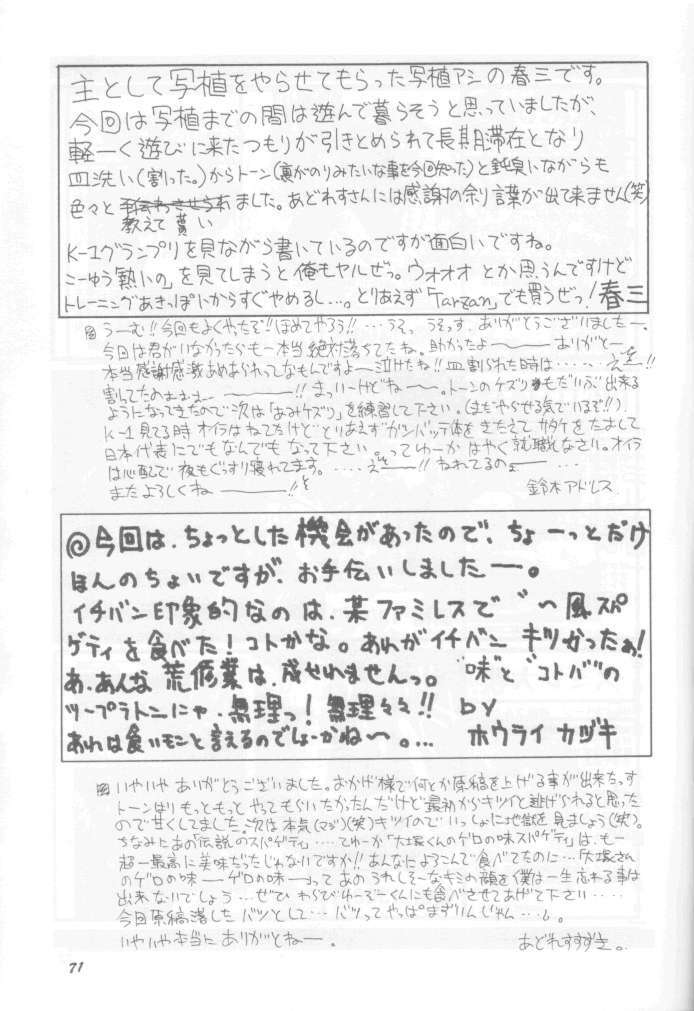 主として写植をやらせてもらった写植アシの春三です。
今回は写植までの間は遊んで暮らそうと思っていましたが、
軽ーく遊びに来たつもりが引きとめられて長期滞在となり
皿洗い(割った。)からトーン(裏がのりみたいな事を今回知った)と鈍臭いながらも
色々と教えて貰いました。あどれすさんには感謝の余り言葉が出て来ません(笑)
K-1グランプリを見ながら書いているのですが面白いですね。
こーゆう「熱いの」を見てしまうと俺もヤルぜっ。ウォオオ とか思うんですけど
トレーニングあきっぽいからすぐやめるし…。とりあえず「Tarzan」でも買うぜっ! 春三
うーむ!!今回もよくやったで!!ほめてやろう!! …うそ。うそっす。ありがとうございましたー。
今回は君がいなかったらもー本当絶対落ちてたね。助かったよー ありがとー
本当感謝感激あめあられってなもんですよー泣けたね!! 皿割られた時は……え!!
割してたのままま ー!! まっいーけどねー。トーンのケズリもだいぶ出来る
ようになってきたので次は「あみケズリ」を練習して下さい。(まだやらせる気でいるぞ!!)
K-1見てる時オイラはねてたけどとりあえずガンバッテ体をきたえてサタケをたおして
日本代表にでもなんでもなって下さい。ってゆーかはやく就職しなさい。オイラ
は心配で夜もぐっすり寝れてます。……え!! ねれてるのー …
またよろしくねー!!
鈴木アドレス
◎今回は、ちょっとした機会があったので、ちょーっとだけ
ほんのちょいですが、お手伝いしましたー。
イチバン印象的なのは、某ファミレスで〝〜風スパ
ゲティを食べた!コトかな。あれがイチバン キツかったぁ!
あ、あんな荒修業は、成せれませんっ。〝味〟と〝コトバ〟の
ツープラトンにゃ、無理っ!無理々々!! by
あれは食いモンと言えるのでしょーかね〜。… ホウライ カヅキ
いやいやありがとうございました。おかげ様で何とか原稿を上げる事が出来たっす
トーンはりもっともっとやってもらいたかったんだけど最初からキツイと逃げられると思った
ので甘くしてました。次は本気(マジ)(笑)キツイのでいっしょに地獄を見ましょう(笑)。
ちなみにあの伝説のスパゲティ……てゆーか「大塚くんのゲロの味スパゲティ」は、もー
超ー最高に美味だったじゃないですか!! あんなによろこんで食べてたのに…「大塚さん
のゲロの味ーゲロの味ー」ってあのうれしそーなキミの顔を僕は一生忘れる事は
出来ないでしょう…ぜひわらびゆーぞーくんにも食べさせてあげて下さい……
今回原稿落したバツとして…バツってやっぱまずいんじゃん…。
いやいや本当にありがとねー。
あどれすすずき。
71